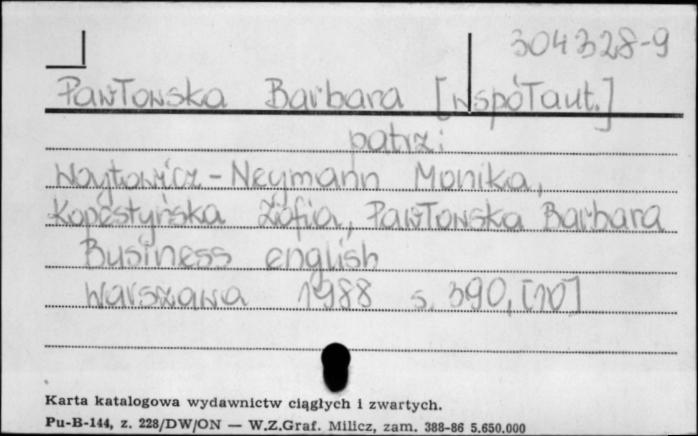 304328-9
Pawłowska Barbara [współaut.]
patrz:
Woytowicz-Neymann Monika,
Kopestyńska Zofia, Pawłowska Barbara
Business english
Warszawa 1988 s. 390, [10]
Karta katalogowa wydawnictw ciągłych i zwartych.
Pu-B-144, z. 228/DW/ON — W.Z.Graf. Milicz, zam. 388-86 5.650.000